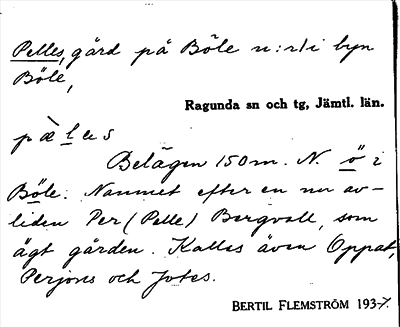 Pelles, gård på Böle n:r 1 i byn
Böle,
Ragunda sn och tg, Jämtl. län.
pæ̀les
Belägen 150 m. N. ö i
Böle. Namnet efter en nu av-
liden Per (Pelle) Bergvall, som
ägt gården. Kallas även Oppat,
Perjons och Jotes.
BERTIL FLEMSTRÖM 193-7.